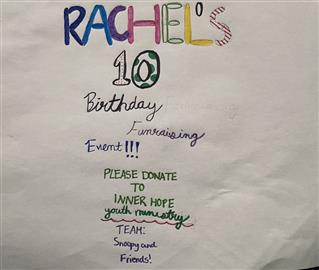 RACHEL'S
10
Birthday
Funraising
Event!!!
PLEASE DONATE
TO
INNER HOPE
youth ministry
TEAM:
Snoopy and
Friends!